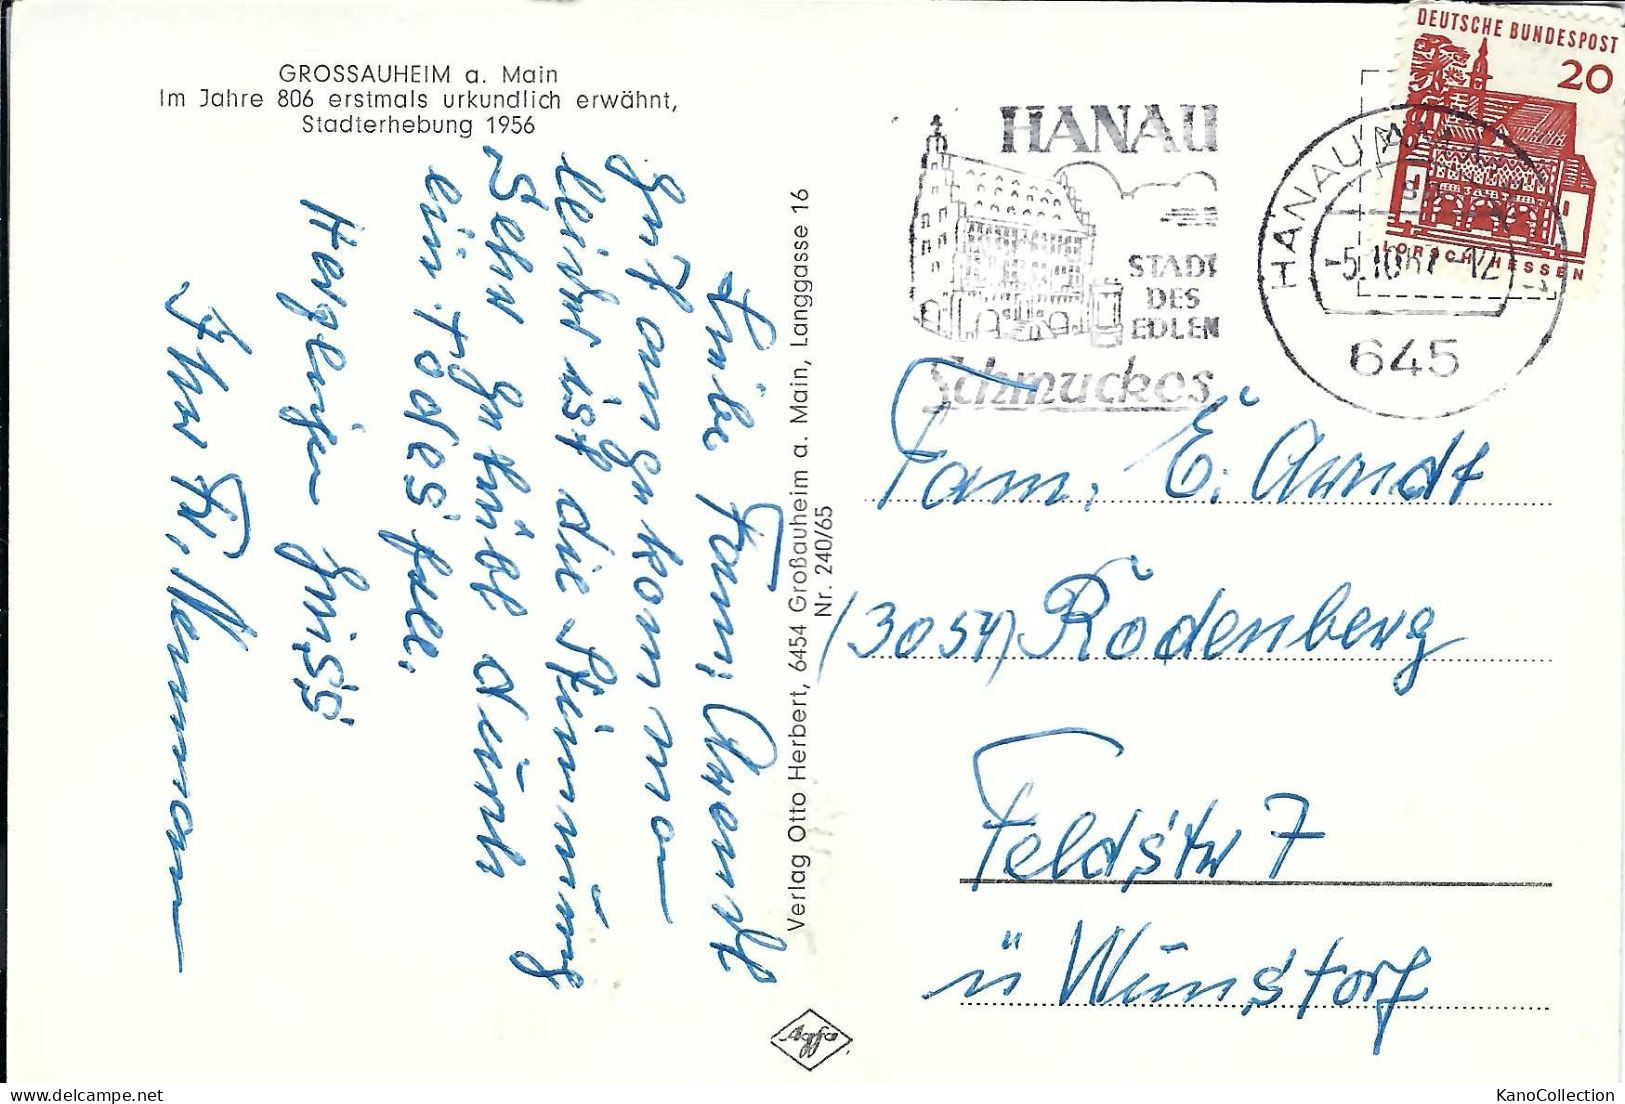 GROSSAUHEIM a. Main
Im Jahre 806 erstmals urkundlich erwähnt,
Stadterhebung 1956
Liebe Fam. Arendt
Gut angekommen
leider ist die Stimmung
Sehr getrübt durch
ein Todesfall.
Herzlichen Gruss
Ihr Fr. Nemmann
Verlag Otto Herbert, 6454 Großauheim a. Main, Langgasse 16
Nr. 240/65
Agfa
HANAU
STADT
DES
EDLEN
Schmuckes
HANAU
-5.10.67-12
645
DEUTSCHE BUNDESPOST
20
LORSCH/HESSEN
Fam. E. Arndt
(3054) Rodenberg
Feldstr 7
ü Wunstorf
KanoCollection